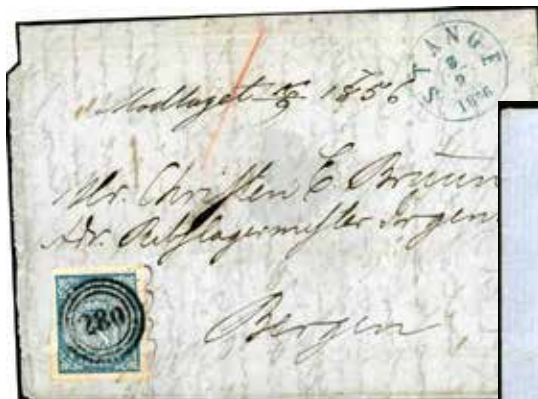 STANGE
8
9
1856
Modtaget 1856
Mr. Christen C. Bruun
Adr. Rebslagermester
280
Bergen